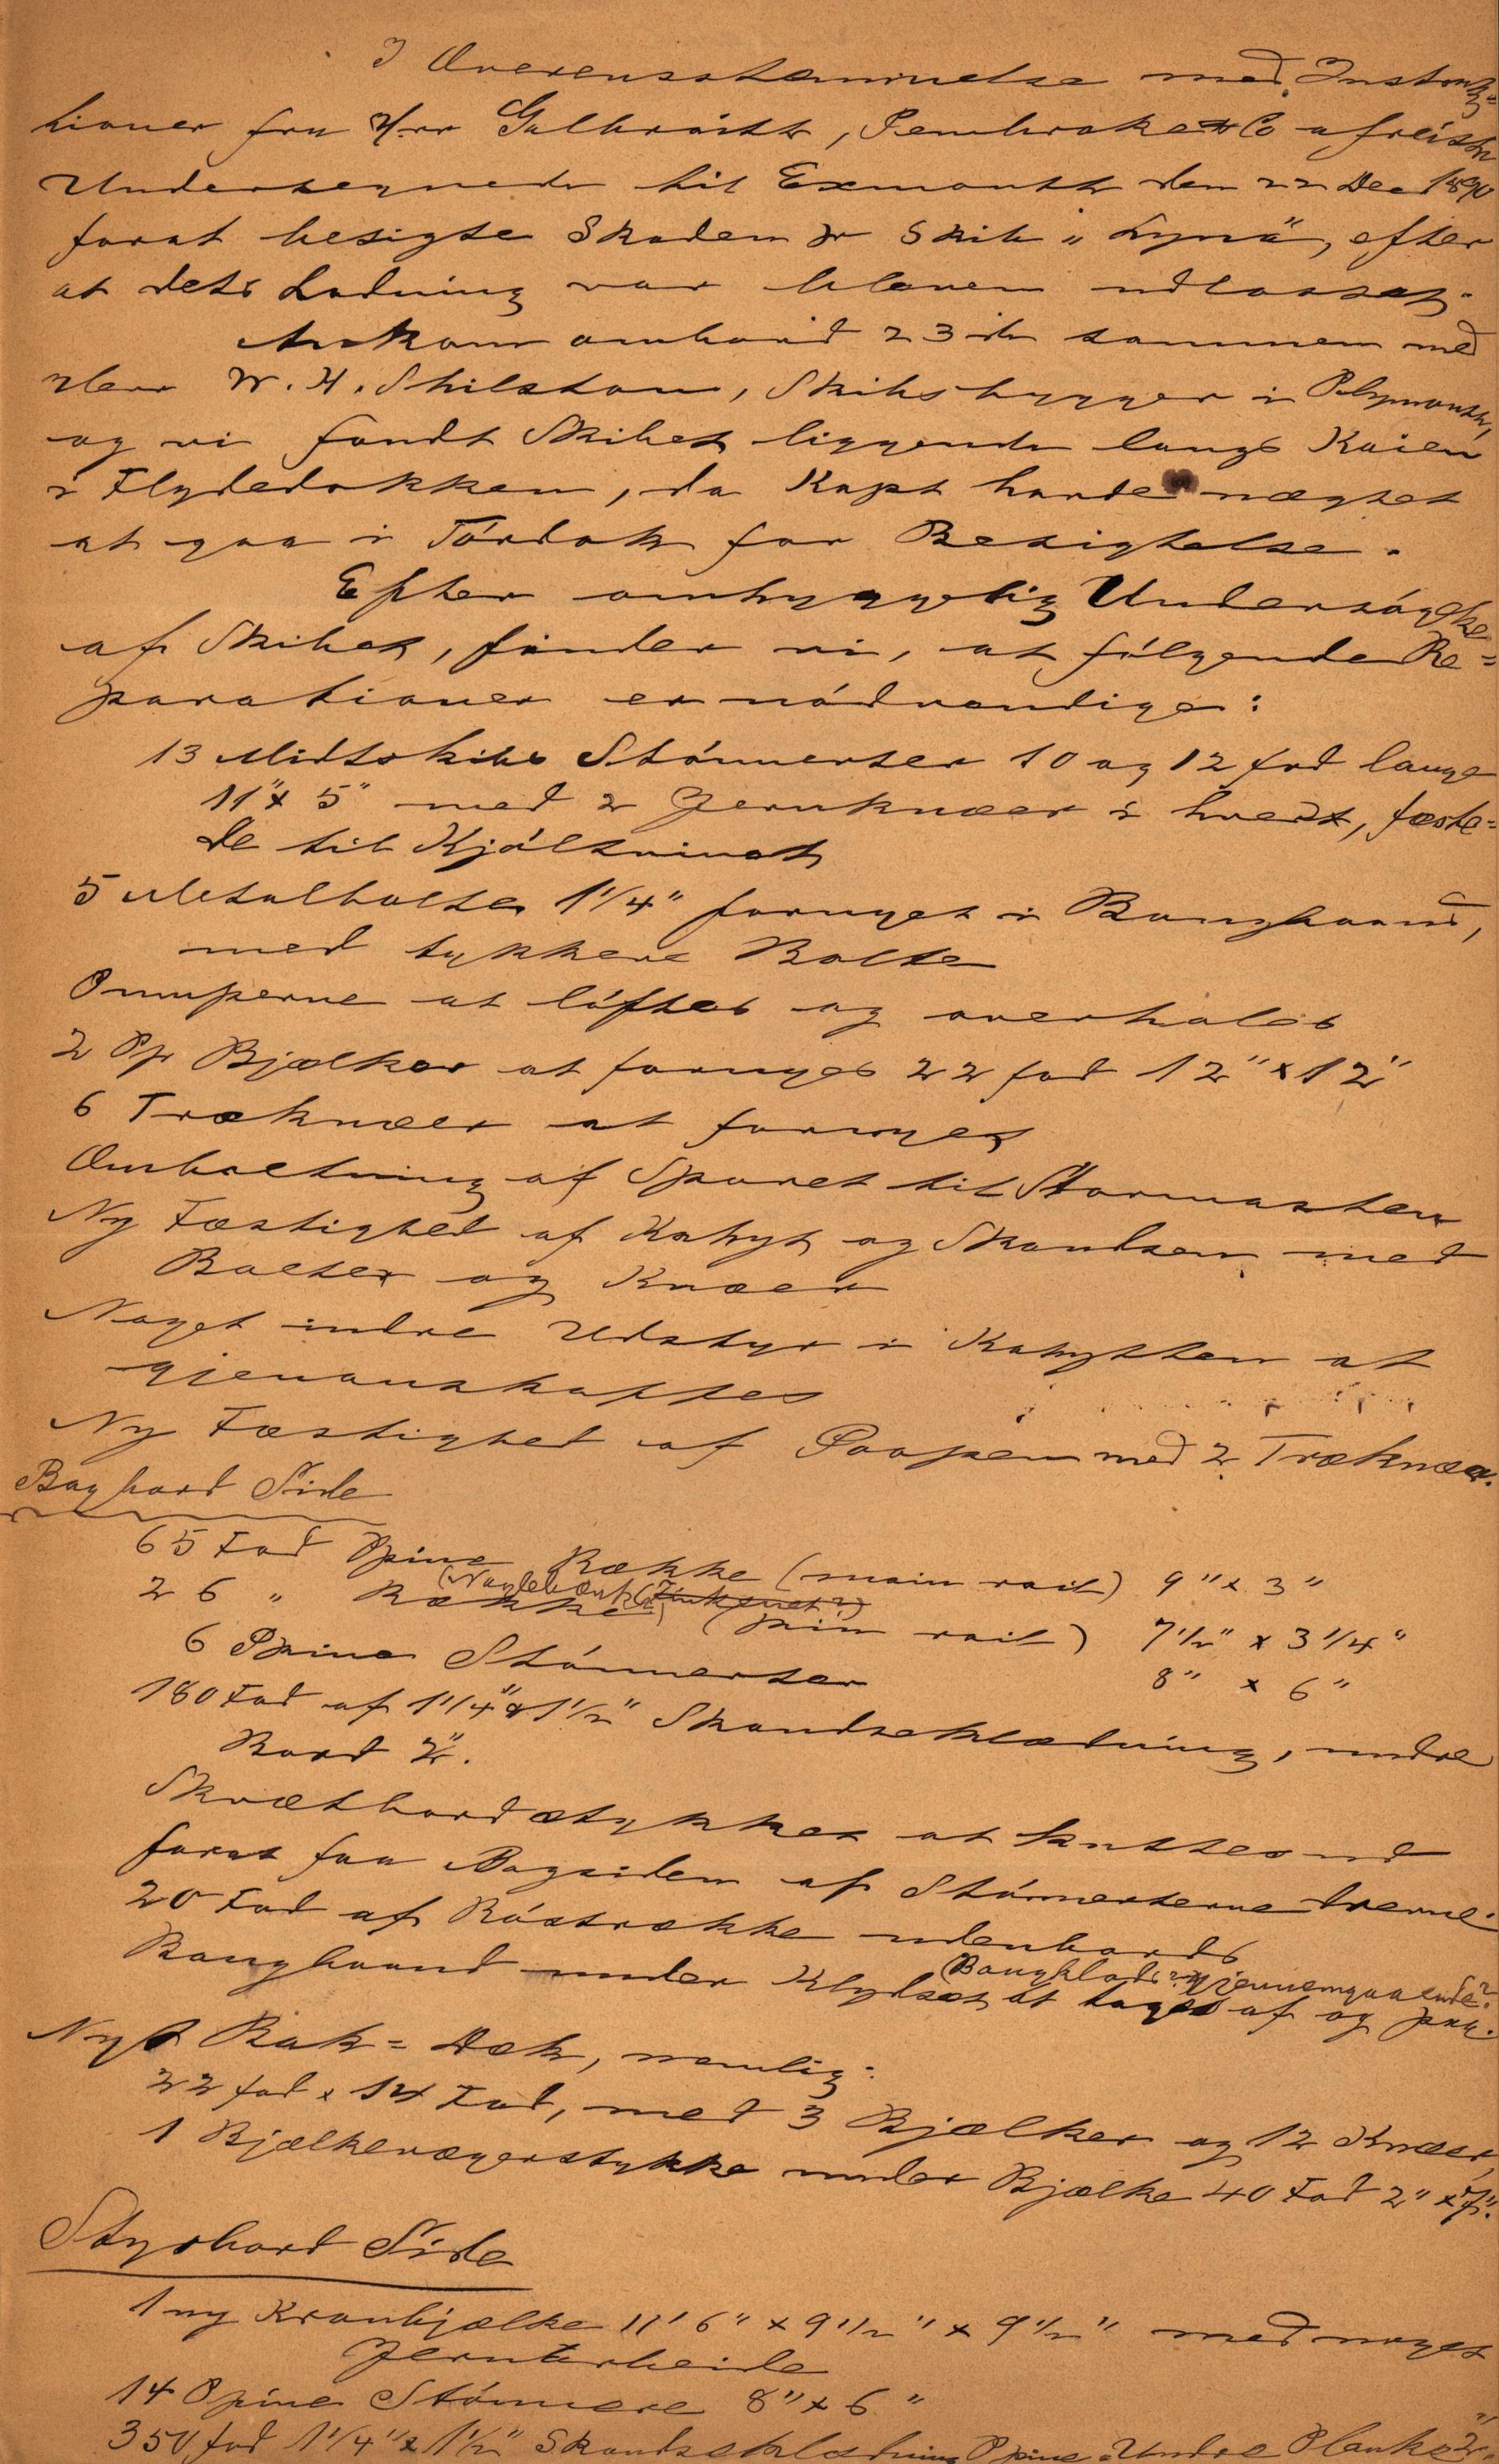 I Overensstemmelse med Instruk=
tioner fra Hrr Galbraith, Pembroke & Co afreiste
Undertegnede til Exmouth den 22 Dec 1890
forat besigte Skaden pr Skib „Lyna", efter
at dets Ladning var bleven udlosset.
Ankom ombord 23de sammen med
Herr W. H. Shilston, Skibsbygger i Plymouth,
og vi fandt Skibet liggende langs Kaien
i Flydedokken, da Kapt havde nægtet
at gaa i Tórdok for Besigtelse.
Efter omhyggelig Undersógelse
af Skibet, finder vi, at fólgende Re=
parationer er nódvendige:
13 Midtskibs Stónnerter 10 og 12 fod lange
11" x 5" med 2 Jernknæer i hvert, fæste=
de til Kjólsvinet
5 Metalbolte 1 1/4" fornyet i Bougbaand,
med tykkere Bolte
Pumperne at lóftes og overhales
2 Pp Bjælker at fornyes 22 fod 12" x 12"
6 Træknæer at fornyes
Omboltning af Sporet til Stormasten
Ny Fæstighed af Kahyt og Skandsen med
Bolter og Knæer
Noget indre Udstyr i Kahytten at
gjenanskaffes
Ny Fæstighed af Poopen med 2 Træknæer.
Bagbord Side
65 Fod Ppine Række (main rail) 9" x 3"
26 " Række (Naglebænk?) (pin rail) 7 1/2" x 3 1/4"
6 Ppine Stónnerter 8" x 6"
180 Fod af 1 1/4" & 1 1/2" Skandseklædning, undre
Bord 2".
Skvætbordstykket at kuttes ud
forat faa Bagsiden af Stónnerterne drevne
20 Fod af Róstrække udenbords
Bougbaand under Klydset (Bougblad? gjennemgaaende?) at tages af og paa.
Nyt Bak=Dæk, nemlig:
22 fod x 14 Fod, med 3 Bjælker og 12 Knæer,
1 Bjælkevægerstykke under Bjælke 40 Fod 2" x 7".
Styrbord Side
1 ny Kranbjælke 11' 6" x 9 1/2" x 9 1/2" med noget
Jernarbeide
14 Ppine Stónnere 8" x 6"
350 fod 1 1/4" x 1 1/2" Skandseklædning Ppine. Undre Planke 2"